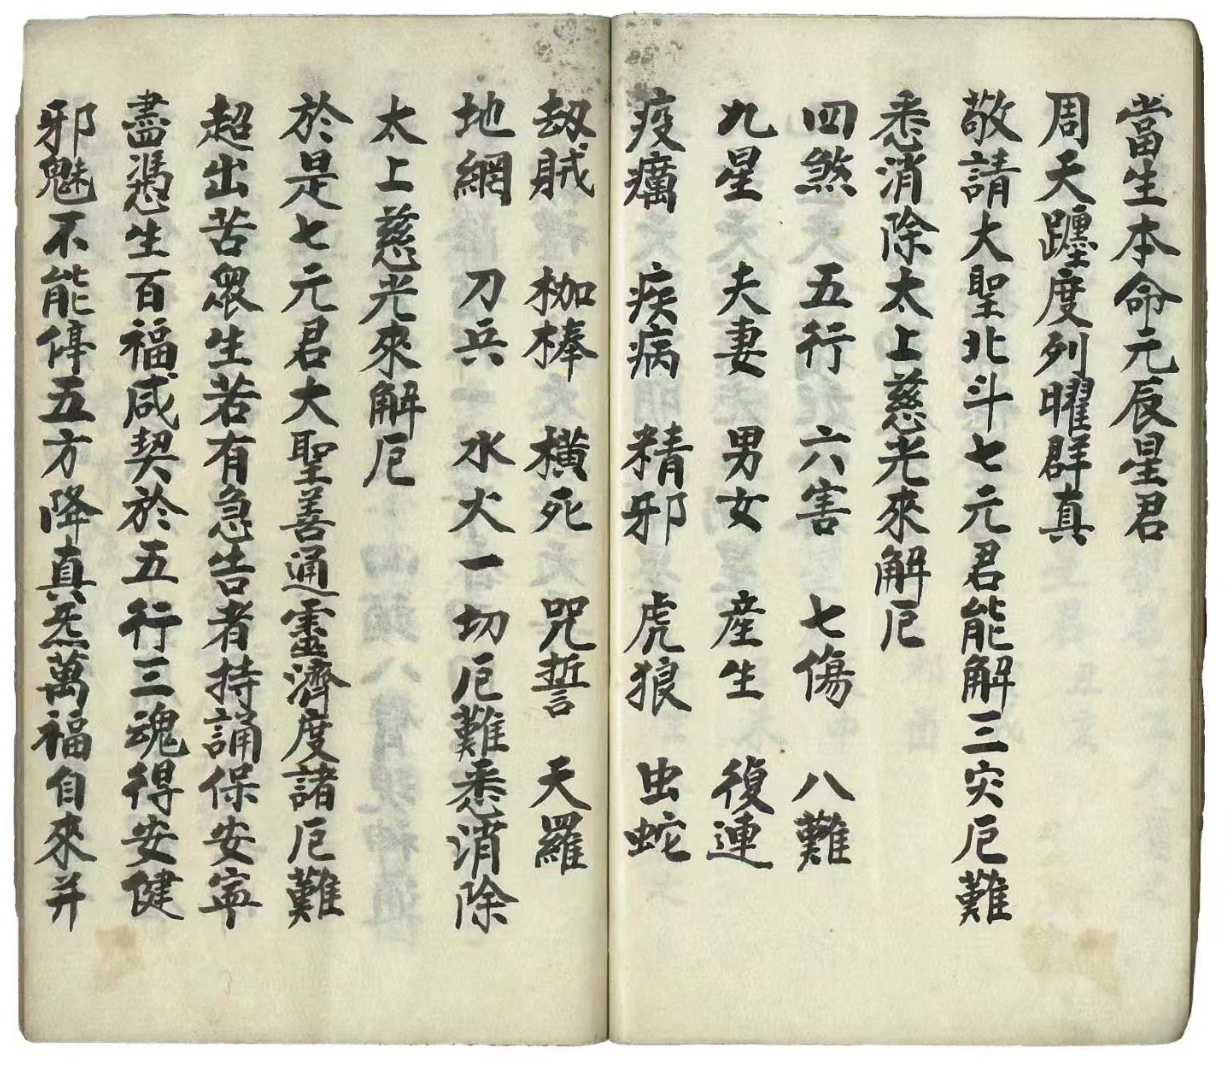 當生本命元辰星君
周天躔度列曜群真
敬請大聖北斗七元君能解三灾厄難
悉消除太上慈光來解厄
四煞 五行 六害 七傷 八難
九星 夫妻 男女 産生 復連
疫癘 疾病 精邪 虎狼 虫蛇
劫賊 枷棒 橫死 咒誓 天羅
地網 刀兵 水火一切厄難悉消除
太上慈光來解厄
於是七元君大聖善通靈濟度諸厄難
超出苦眾生若有急告者持誦保安寧
盡憑生百福咸契於五行三魂得安健
邪魅不能停五方降真炁萬福自來并